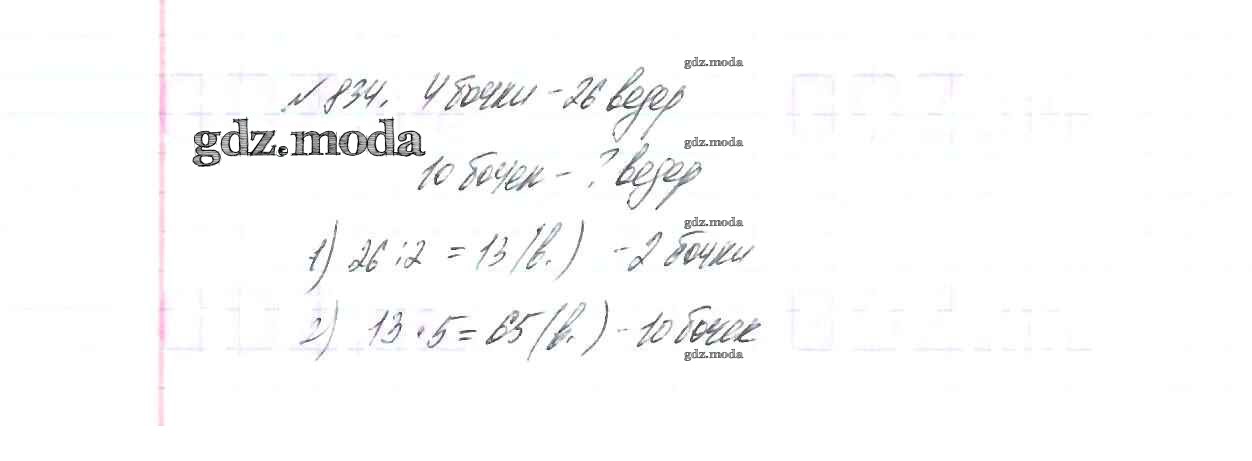 gdz.moda
№834. 4 бочки - 26 ведер
gdz.moda
gdz.moda
10 бочек - ? ведер
gdz.moda
1) 26 : 2 = 13 (в.) - 2 бочки
2) 13 · 5 = 65 (в.) - 10 бочек
gdz.moda